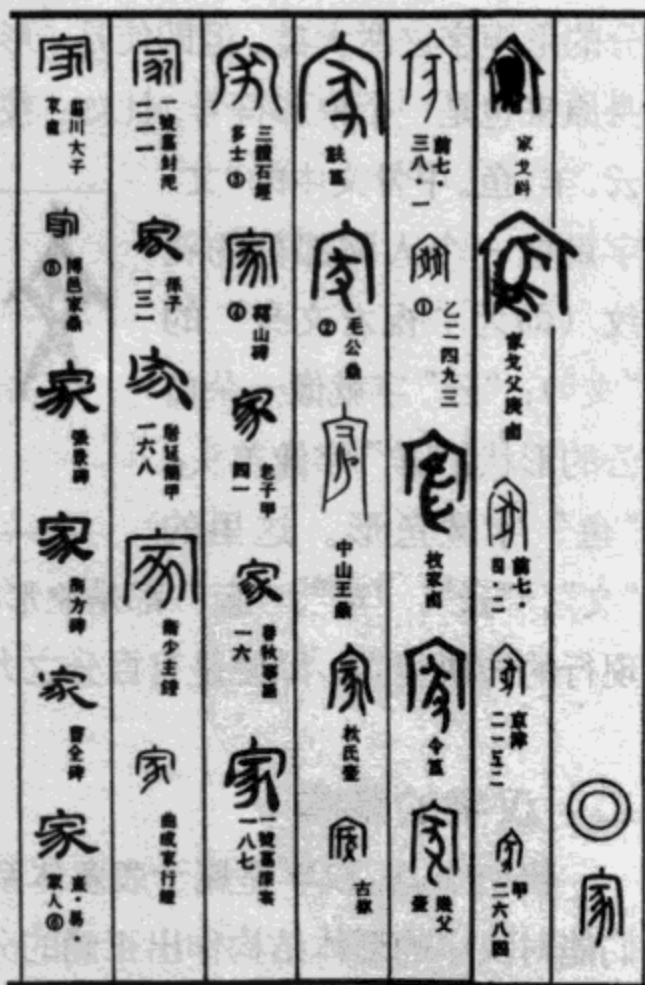 家
家 家戈
家 家戈父庚卣
家 前七·四·二
家 京津二一五二
家 甲二六八四
家 前七·三八·一
家 ① 乙二四九三
家 枚家卣
家 令簋
家 幾父壺
家
家 毛公鼎 ②
家 中山王鼎
家 氏壺
家 古鉨
家 三體石經多士 ③
家 嶧山碑 ④
家 老子甲四一
家 春秋事語一六
家 一號墓漆 一八七
家 一號墓封泥二一一
家 孫子一三一
家 居延簡甲一六八
家 衛少主鍾
家 曲成家行鐙
家 菑川大子家
家 ⑤ 邑家鼎
家 張景碑
家 衡方碑
家 曹全碑
家 熹·易·家人⑥